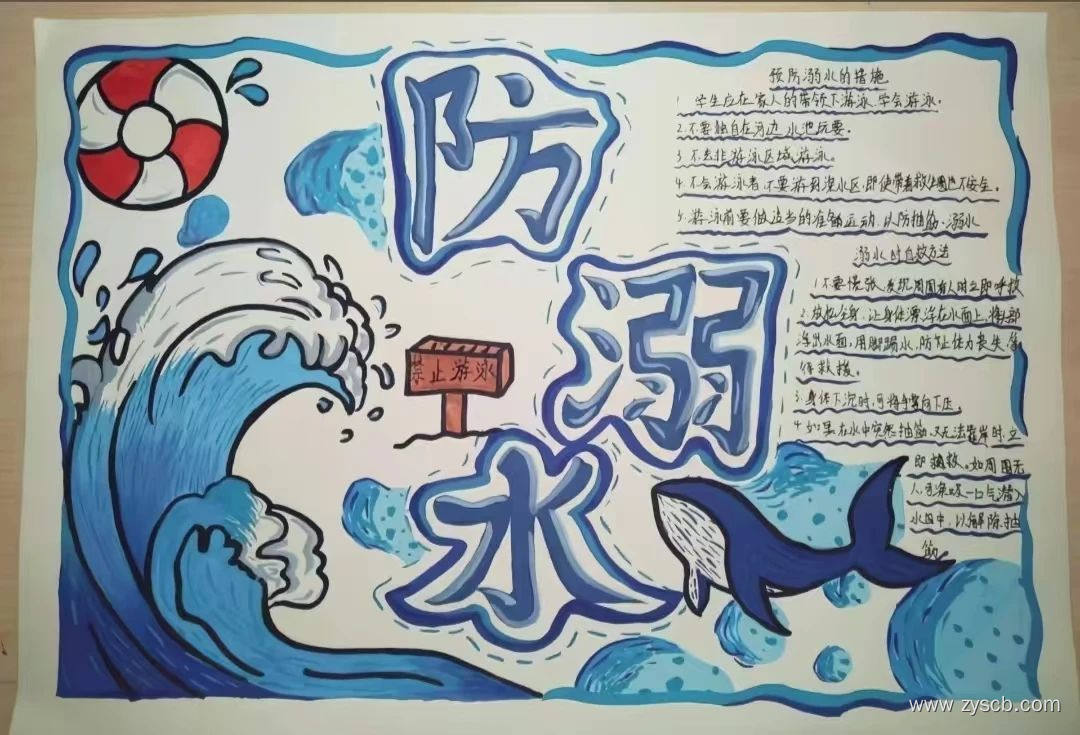 防
溺
水
禁止游泳
预防溺水的措施
1 学生应在家人的带领下游泳,学会游泳。
2.不要独自在河边、水池玩耍。
3 不去非游泳区域游泳。
4.不会游泳者,不要游到深水区,即使带着救生圈也不安全。
5.游泳前要做适当的准备运动,以防抽筋、溺水
溺水时自救方法
1 不要慌张,发现周围有人时立即呼救
2.放松全身,让身体漂浮在水面上,将头部
浮出水面,用脚踢水,防止体力丧失,等
待救援。
3.身体下沉时,可将手掌向下压。
4 如果在水中突然抽筋,又无法靠岸时,立
即求救。如周围无
人,可深吸一口气潜入
水中,以解除抽
筋
www.zyscb.com